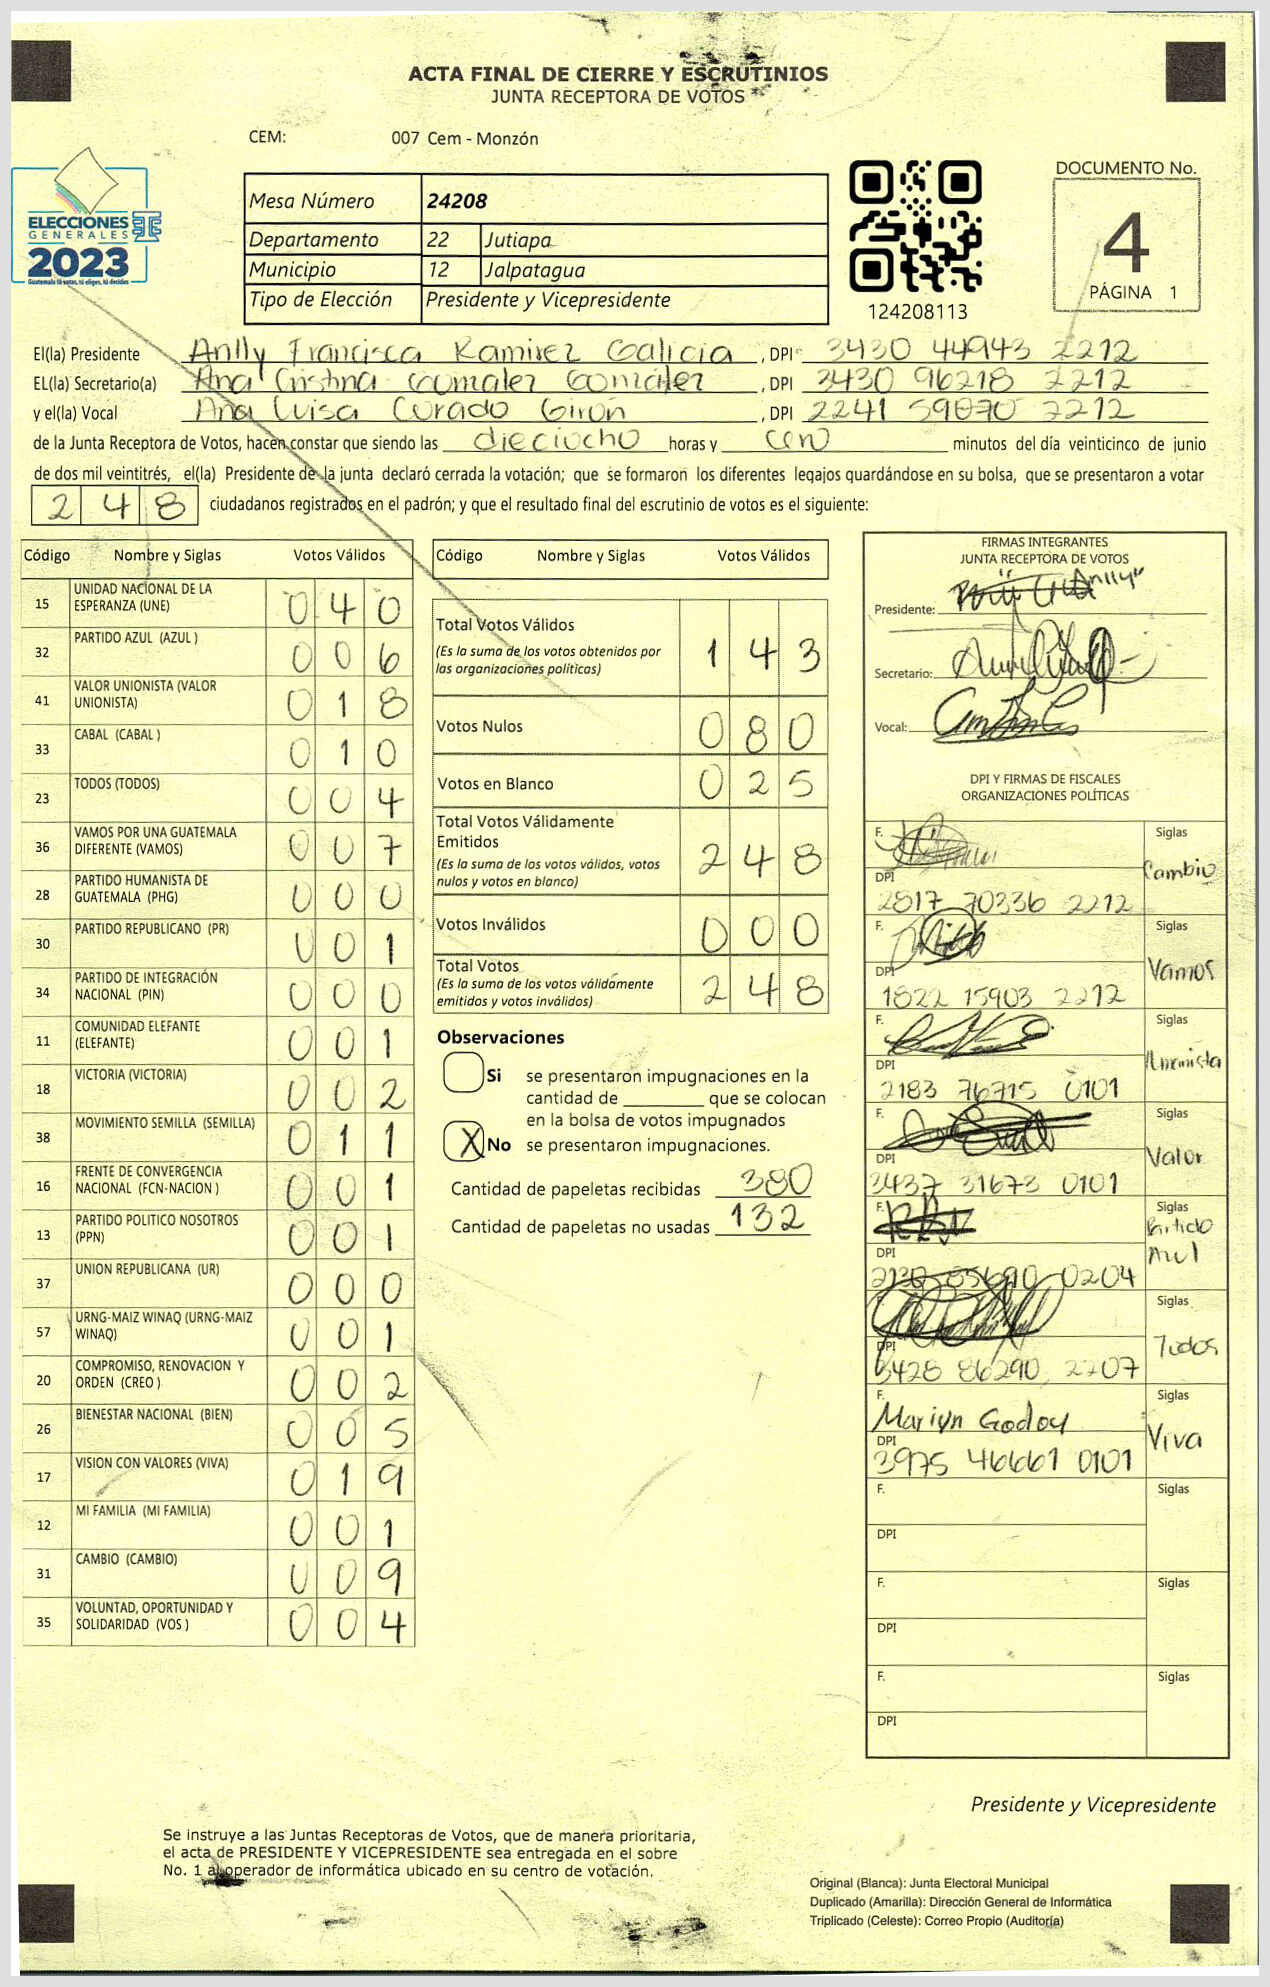 ACTA FINAL DE CIERRE Y ESCRUTINIOS
JUNTA RECEPTORA DE VOTOS
CEM: 007 Cem - Monzón
ELECCIONES
GENERALES
2023
Guatemala tú votas, tú eliges, tú decides
Mesa Número 24208
Departamento 22 Jutiapa
Municipio 12 Jalpatagua
Tipo de Elección Presidente y Vicepresidente
124208113
DOCUMENTO No.
4
PÁGINA 1
El(la) Presidente Anlly Francisca Ramirez Galicia, DPI 3430 44943 2212
EL(la) Secretario(a) Ana Cristina Gonzalez González, DPI 3430 96218 2212
y el(la) Vocal Ana Luisa Corado Girón, DPI 2241 59070 2212
de la Junta Receptora de Votos, hacen constar que siendo las dieciocho horas y cero minutos del día veinticinco de junio
de dos mil veintitrés, el(la) Presidente de la junta declaró cerrada la votación; que se formaron los diferentes legajos quardándose en su bolsa, que se presentaron a votar
248 ciudadanos registrados en el padrón; y que el resultado final del escrutinio de votos es el siguiente:
Código Nombre y Siglas Votos Válidos
15 UNIDAD NACIONAL DE LA ESPERANZA (UNE) 040
32 PARTIDO AZUL (AZUL ) 006
41 VALOR UNIONISTA (VALOR UNIONISTA) 018
33 CABAL (CABAL ) 010
23 TODOS (TODOS) 004
36 VAMOS POR UNA GUATEMALA DIFERENTE (VAMOS) 007
28 PARTIDO HUMANISTA DE GUATEMALA (PHG) 000
30 PARTIDO REPUBLICANO (PR) 001
34 PARTIDO DE INTEGRACIÓN NACIONAL (PIN) 000
11 COMUNIDAD ELEFANTE (ELEFANTE) 001
18 VICTORIA (VICTORIA) 002
38 MOVIMIENTO SEMILLA (SEMILLA) 011
16 FRENTE DE CONVERGENCIA NACIONAL (FCN-NACION ) 001
13 PARTIDO POLITICO NOSOTROS (PPN) 001
37 UNION REPUBLICANA (UR) 000
57 URNG-MAIZ WINAQ (URNG-MAIZ WINAQ) 001
20 COMPROMISO, RENOVACION Y ORDEN (CREO ) 002
26 BIENESTAR NACIONAL (BIEN) 005
17 VISION CON VALORES (VIVA) 019
12 MI FAMILIA (MI FAMILIA) 001
31 CAMBIO (CAMBIO) 009
35 VOLUNTAD, OPORTUNIDAD Y SOLIDARIDAD (VOS ) 004
Código Nombre y Siglas Votos Válidos
Total Votos Válidos 143
(Es la suma de los votos obtenidos por
las organizaciones políticas)
Votos Nulos 080
Votos en Blanco 025
Total Votos Válidamente
Emitidos 248
(Es la suma de los votos válidos, votos
nulos y votos en blanco)
Votos Inválidos 000
Total Votos 248
(Es la suma de los votos válidamente
emitidos y votos inválidos)
Observaciones
Si se presentaron impugnaciones en la
cantidad de ________ que se colocan
en la bolsa de votos impugnados
X No se presentaron impugnaciones.
Cantidad de papeletas recibidas 380
Cantidad de papeletas no usadas 132
FIRMAS INTEGRANTES
JUNTA RECEPTORA DE VOTOS
Presidente: "Anlly"
Secretario:
Vocal:
DPI Y FIRMAS DE FISCALES
ORGANIZACIONES POLÍTICAS
F. Siglas Cambio
DPI 2817 70336 2212
F. Siglas Vamos
DPI 1822 15903 2212
F. Siglas Unionista
DPI 2183 76715 0101
F. Siglas Valor
DPI 3437 31673 0101
F. Siglas Partido Azul
DPI 2130 85690 0204
F. Siglas Todos
DPI 3428 86290 2207
F. Mariyn Godoy Siglas Viva
DPI 3975 46661 0101
F. Siglas
DPI
F. Siglas
DPI
F. Siglas
DPI
Presidente y Vicepresidente
Se instruye a las Juntas Receptoras de Votos, que de manera prioritaria,
el acta de PRESIDENTE Y VICEPRESIDENTE sea entregada en el sobre
No. 1 al operador de informática ubicado en su centro de votación.
Original (Blanca): Junta Electoral Municipal
Duplicado (Amarilla): Dirección General de Informática
Triplicado (Celeste): Correo Propio (Auditoría)